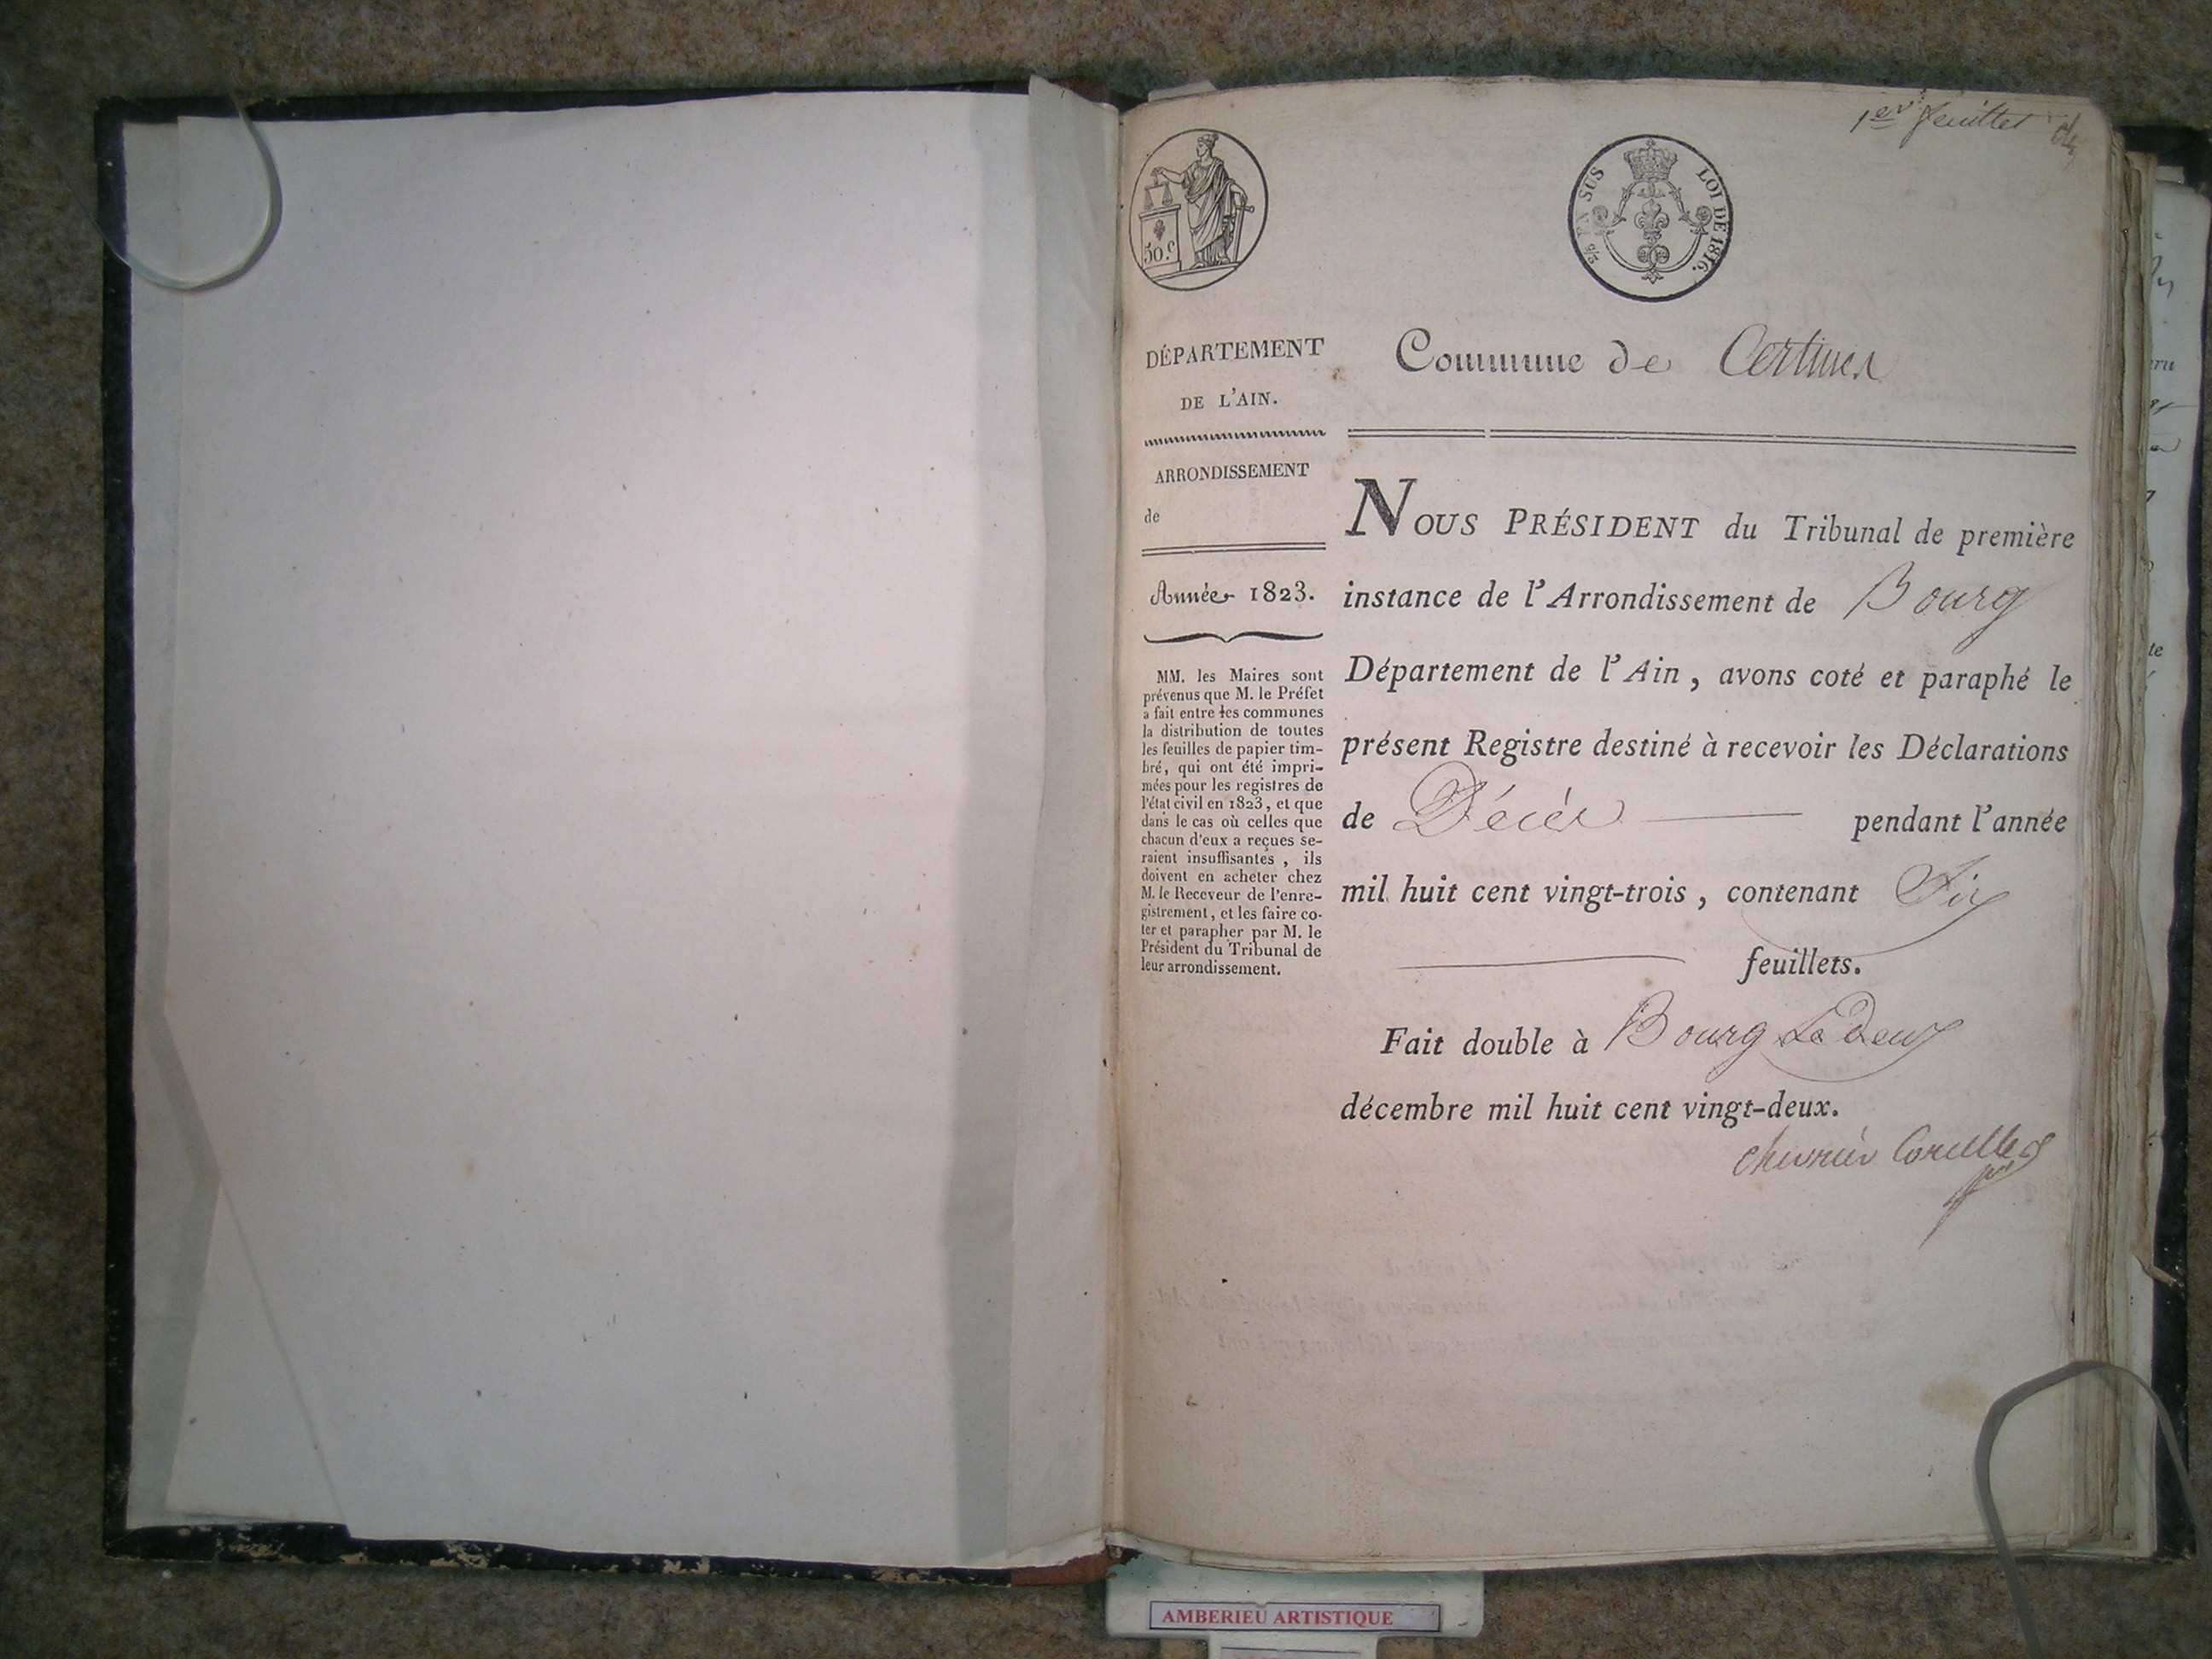 1er feuillet
50.c
2/5 EN SUS
LOI DE 1816.
DÉPARTEMENT
DE L'AIN.
ARRONDISSEMENT
de
Année 1823.
MM. les Maires sont
prévenus que M. le Préfet
a fait entre les communes
la distribution de toutes
les feuilles de papier tim-
bré, qui ont été impri-
mées pour les registres de
l'état civil en 1823, et que
dans le cas où celles que
chacun d'eux a reçues se-
raient insuffisantes, ils
doivent en acheter chez
M. le Receveur de l'enre-
gistrement, et les faire co-
ter et parapher par M. le
Président du Tribunal de
leur arrondissement.
Commune de Certines
NOUS PRÉSIDENT du Tribunal de première
instance de l'Arrondissement de Bourg
Département de l'Ain, avons coté et paraphé le
présent Registre destiné à recevoir les Déclarations
de Décès pendant l'année
mil huit cent vingt-trois, contenant Six
feuillets.
Fait double à Bourg Le Deux
décembre mil huit cent vingt-deux.
Chevrier Corcelles
AMBERIEU ARTISTIQUE